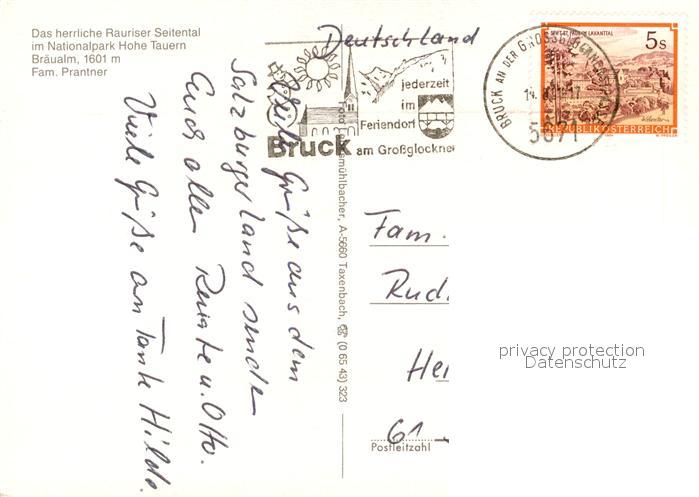 Das herrliche Rauriser Seitental
im Nationalpark Hohe Tauern
Bräualm, 1601 m
Fam. Prantner
Deutschland
jederzeit
im
Feriendorf
Bruck am Großglockner
BRUCK AN DER GROSSGLOCKNERSTRASSE
5671
STIFT ST. PAUL IM LAVANTTAL
5 S
REPUBLIK ÖSTERREICH
Viele Grüße aus dem
Salzburger Land senden
Euch allen Renate u. Otto.
Viele Grüße an Tante Hilde.
mühlbacher, A-5660 Taxenbach, ☎ (0 65 43) 323
Fam.
Rud.
Hei
61
Postleitzahl
privacy protection
Datenschutz